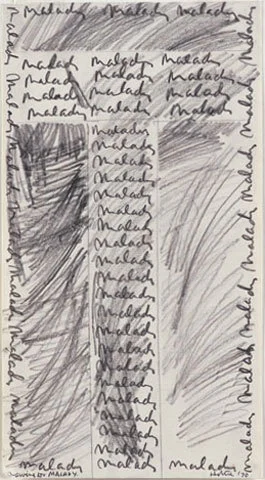 malady malady malady
malady malady malady
malady malady malady
malady malady malady
malady malady malady
malady
malady
malady
malady
malady
malady
malady
malady
malady
malady
malady
malady
malady
malady
malady
malady
malady
malady
malady
malady
malady malady malady
malady malady malady malady malady malady malady malady
malady malady malady malady malady malady malady malady malady
Drawing for MALADY.
'70